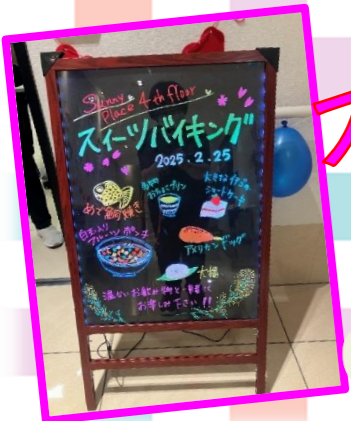 Sunny Place 4th floor
スイーツバイキング
2025.2.25
めで鯛焼き
大きないちごの
ショートケーキ
白玉入り
フルーツポンチ
アメリカンドッグ
大福
温かいお飲み物と一緒に
お楽しみ下さい!!